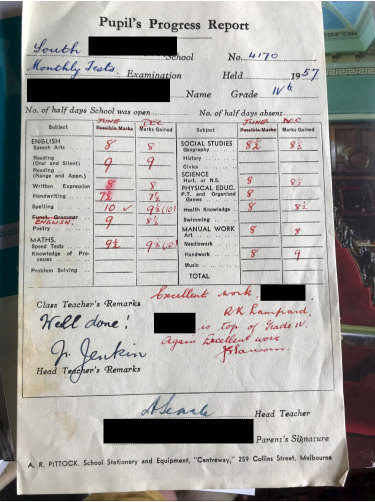 Pupil's Progress Report
South School No. 4170
Monthly Tests Examination Held 1957
Name Grade IV b
No. of half days School was open No. of half days absent
JUNE DEC JUNE DEC
Subject Possible Marks Marks Gained Subject Possible Marks Marks Gained
ENGLISH SOCIAL STUDIES 8½ 8½
Speech Arts 8 8 Geography
Reading History
(Oral and Silent) 9 9 Civics
Reading SCIENCE
(Range and Appn.) Hort. or N.S. 8 8½
Written Expression 8 8 PHYSICAL EDUC.
Handwriting 7½ 7½ P.T. and Organised Games 8
Spelling 10 ✓ 9½ (10) Health Knowledge 8 8½
Funct. Grammar
ENGLISH. 9 8½ Swimming
Poetry MANUAL WORK
MATHS. Art 8 8
Speed Tests 9½ 9½ (10) Needlework
Knowledge of Processes Handwork 8 9
Problem Solving Music
TOTAL
Excellent work
Class Teacher's Remarks R.K. Lampard.
Well done! is top of Grade IV.
Again Excellent work
Jenkin
Head Teacher's Remarks
Head Teacher
Parent's Signature
A. R. PITTOCK. School Stationery and Equipment, "Centreway," 259 Collins Street, Melbourne